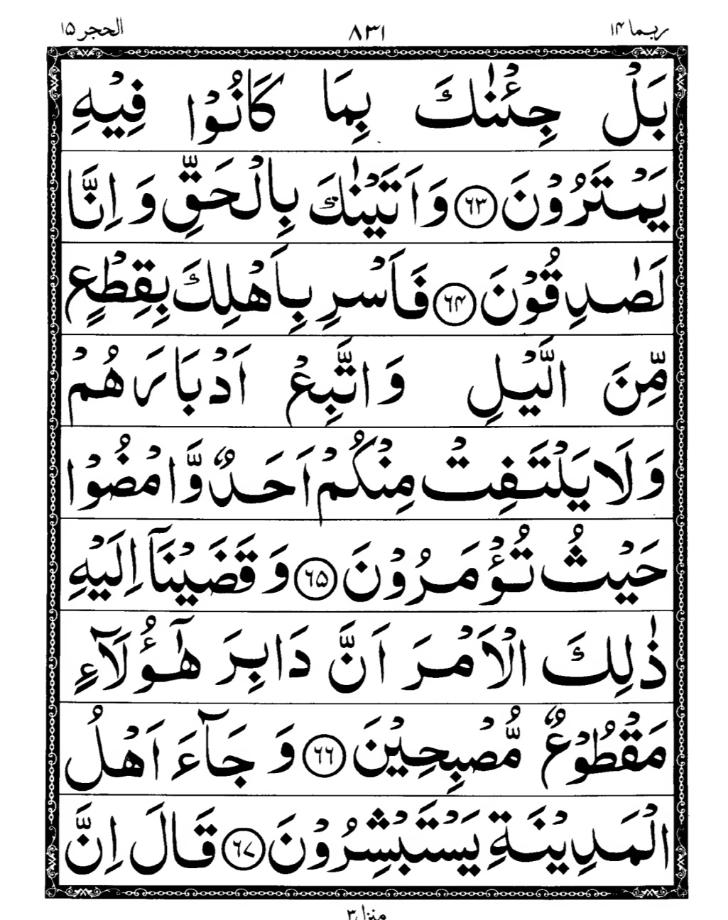 ربما ۱۴ ۸۳۱ الحجر ۱۵
بَلْ جِئْنٰكَ بِمَا كَانُوْا فِيْهِ
يَمْتَرُوْنَ ۶۳ وَاَتَيْنٰكَ بِالْحَقِّ وَ اِنَّا
لَصٰدِقُوْنَ ۶۴ فَاَسْرِ بِاَهْلِكَ بِقِطْعٍ
مِّنَ الَّيْلِ وَاتَّبِعْ اَدْبَارَهُمْ
وَلَا يَلْتَفِتْ مِنْكُمْ اَحَدٌ وَّامْضُوْا
حَيْثُ تُؤْمَرُوْنَ ۶۵ وَ قَضَيْنَاۤ اِلَيْهِ
ذٰلِكَ الْاَمْرَ اَنَّ دَابِرَ هٰۤؤُلَآءِ
مَقْطُوْعٌ مُّصْبِحِيْنَ ۶۶ وَ جَآءَ اَهْلُ
الْمَدِيْنَةِ يَسْتَبْشِرُوْنَ ۶۷ قَالَ اِنَّ
منزل ۳